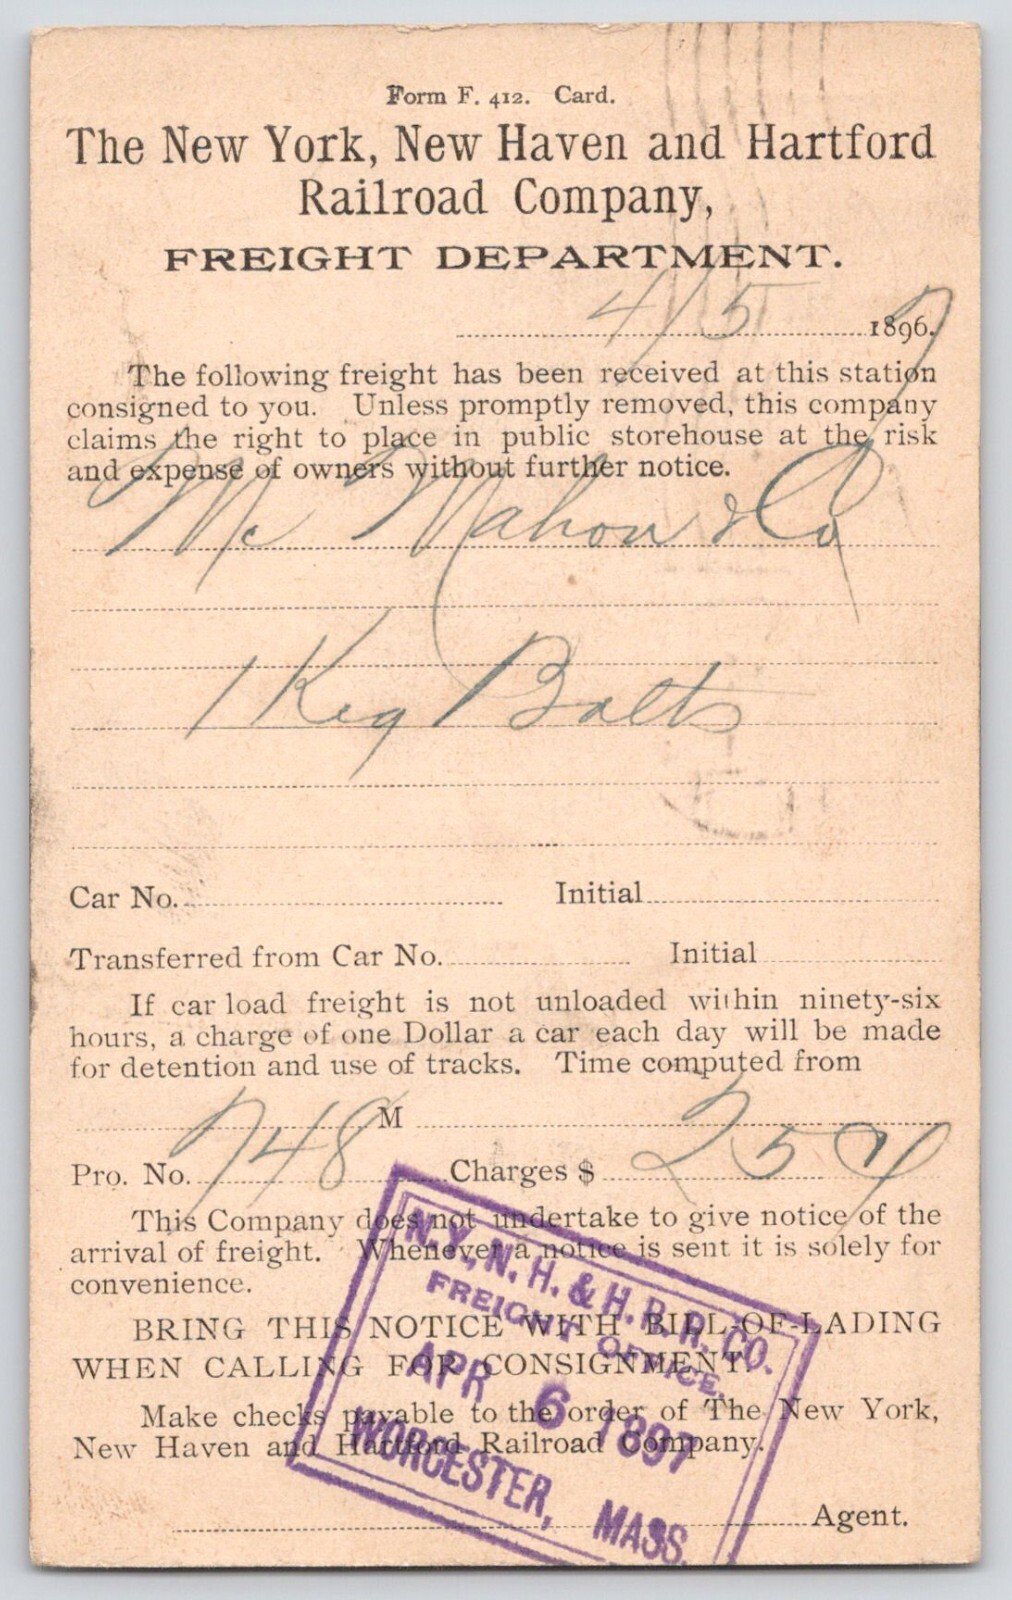 Form F. 412. Card.
The New York, New Haven and Hartford
Railroad Company,
FREIGHT DEPARTMENT.
4/5 1896. 7
The following freight has been received at this station
consigned to you. Unless promptly removed, this company
claims the right to place in public storehouse at the risk
and expense of owners without further notice.
Mc Mahon & Co
1 Keg Bolts
Car No. Initial
Transferred from Car No. Initial
If car load freight is not unloaded within ninety-six
hours, a charge of one Dollar a car each day will be made
for detention and use of tracks. Time computed from
M
Pro. No. 748 Charges $ 25
This Company does not undertake to give notice of the
arrival of freight. Whenever a notice is sent it is solely for
convenience.
BRING THIS NOTICE WITH BILL-OF-LADING
WHEN CALLING FOR CONSIGNMENT.
Make checks payable to the order of The New York,
New Haven and Hartford Railroad Company.
Agent.
N.Y., N. H. & H. R. R. CO.
FREIGHT OFFICE.
APR 6 1897
WORCESTER, MASS.